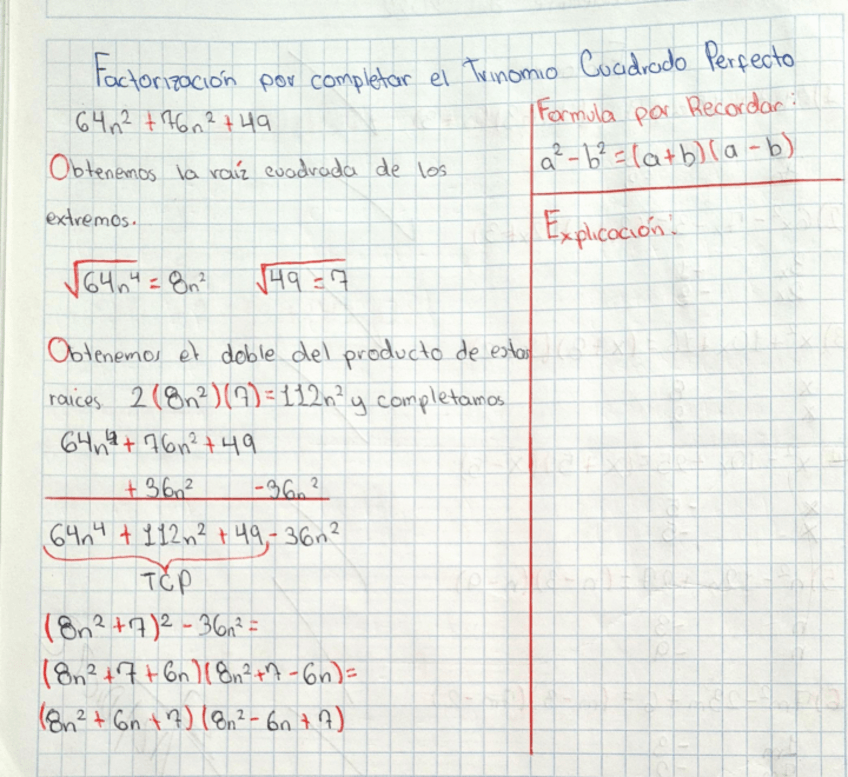 Factorización por completar el Trinomio Cuadrado Perfecto
64n² + 76n² + 49
Obtenemos la raíz cuadrada de los
extremos.
√64n⁴ = 8n² √49 = 7
Obtenemos el doble del producto de estas
raices 2(8n²)(7) = 112n² y completamos
64n⁴ + 76n² + 49
+ 36n² - 36n²
64n⁴ + 112n² + 49 - 36n²
TCP
(8n² + 7)² - 36n² =
(8n² + 7 + 6n)(8n² + 7 - 6n) =
(8n² + 6n + 7)(8n² - 6n + 7)
Formula por Recordar:
a² - b² = (a + b)(a - b)
Explicación: